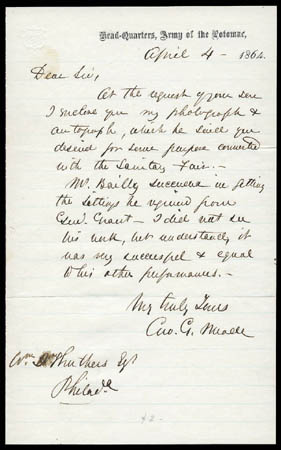 Head-Quarters, Army of the Potomac,
April 4 - 1864.
Dear Sir,
At the request of your son
I enclose you my photograph &
autograph, which he said you
desired for some purpose connected
with the Sanitary Fair. -
Mr. Bailly succeeded in getting
the sittings he required from
Genl. Grant - I did not see
his work, but understand it
was very successful & equal
to his other performances. -
Very truly Yours
Geo. G. Meade
Wm Struthers Esqr
Philada
42-